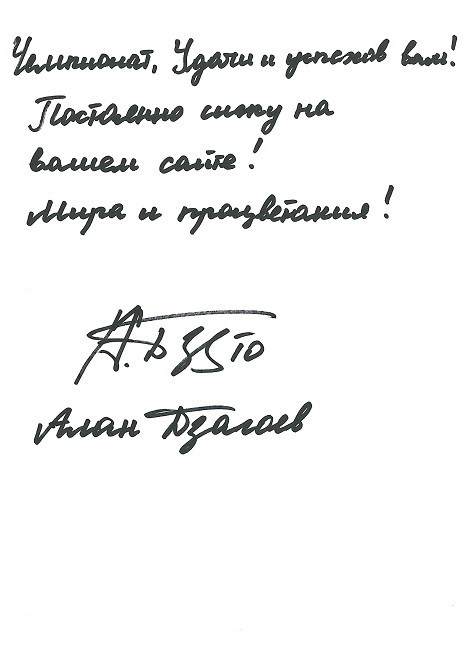 Чемпионат, Удачи и успехов вам!
Постоянно сижу на
вашем сайте!
Мира и процветания!
А. Дз 10
Алан Дзагоев